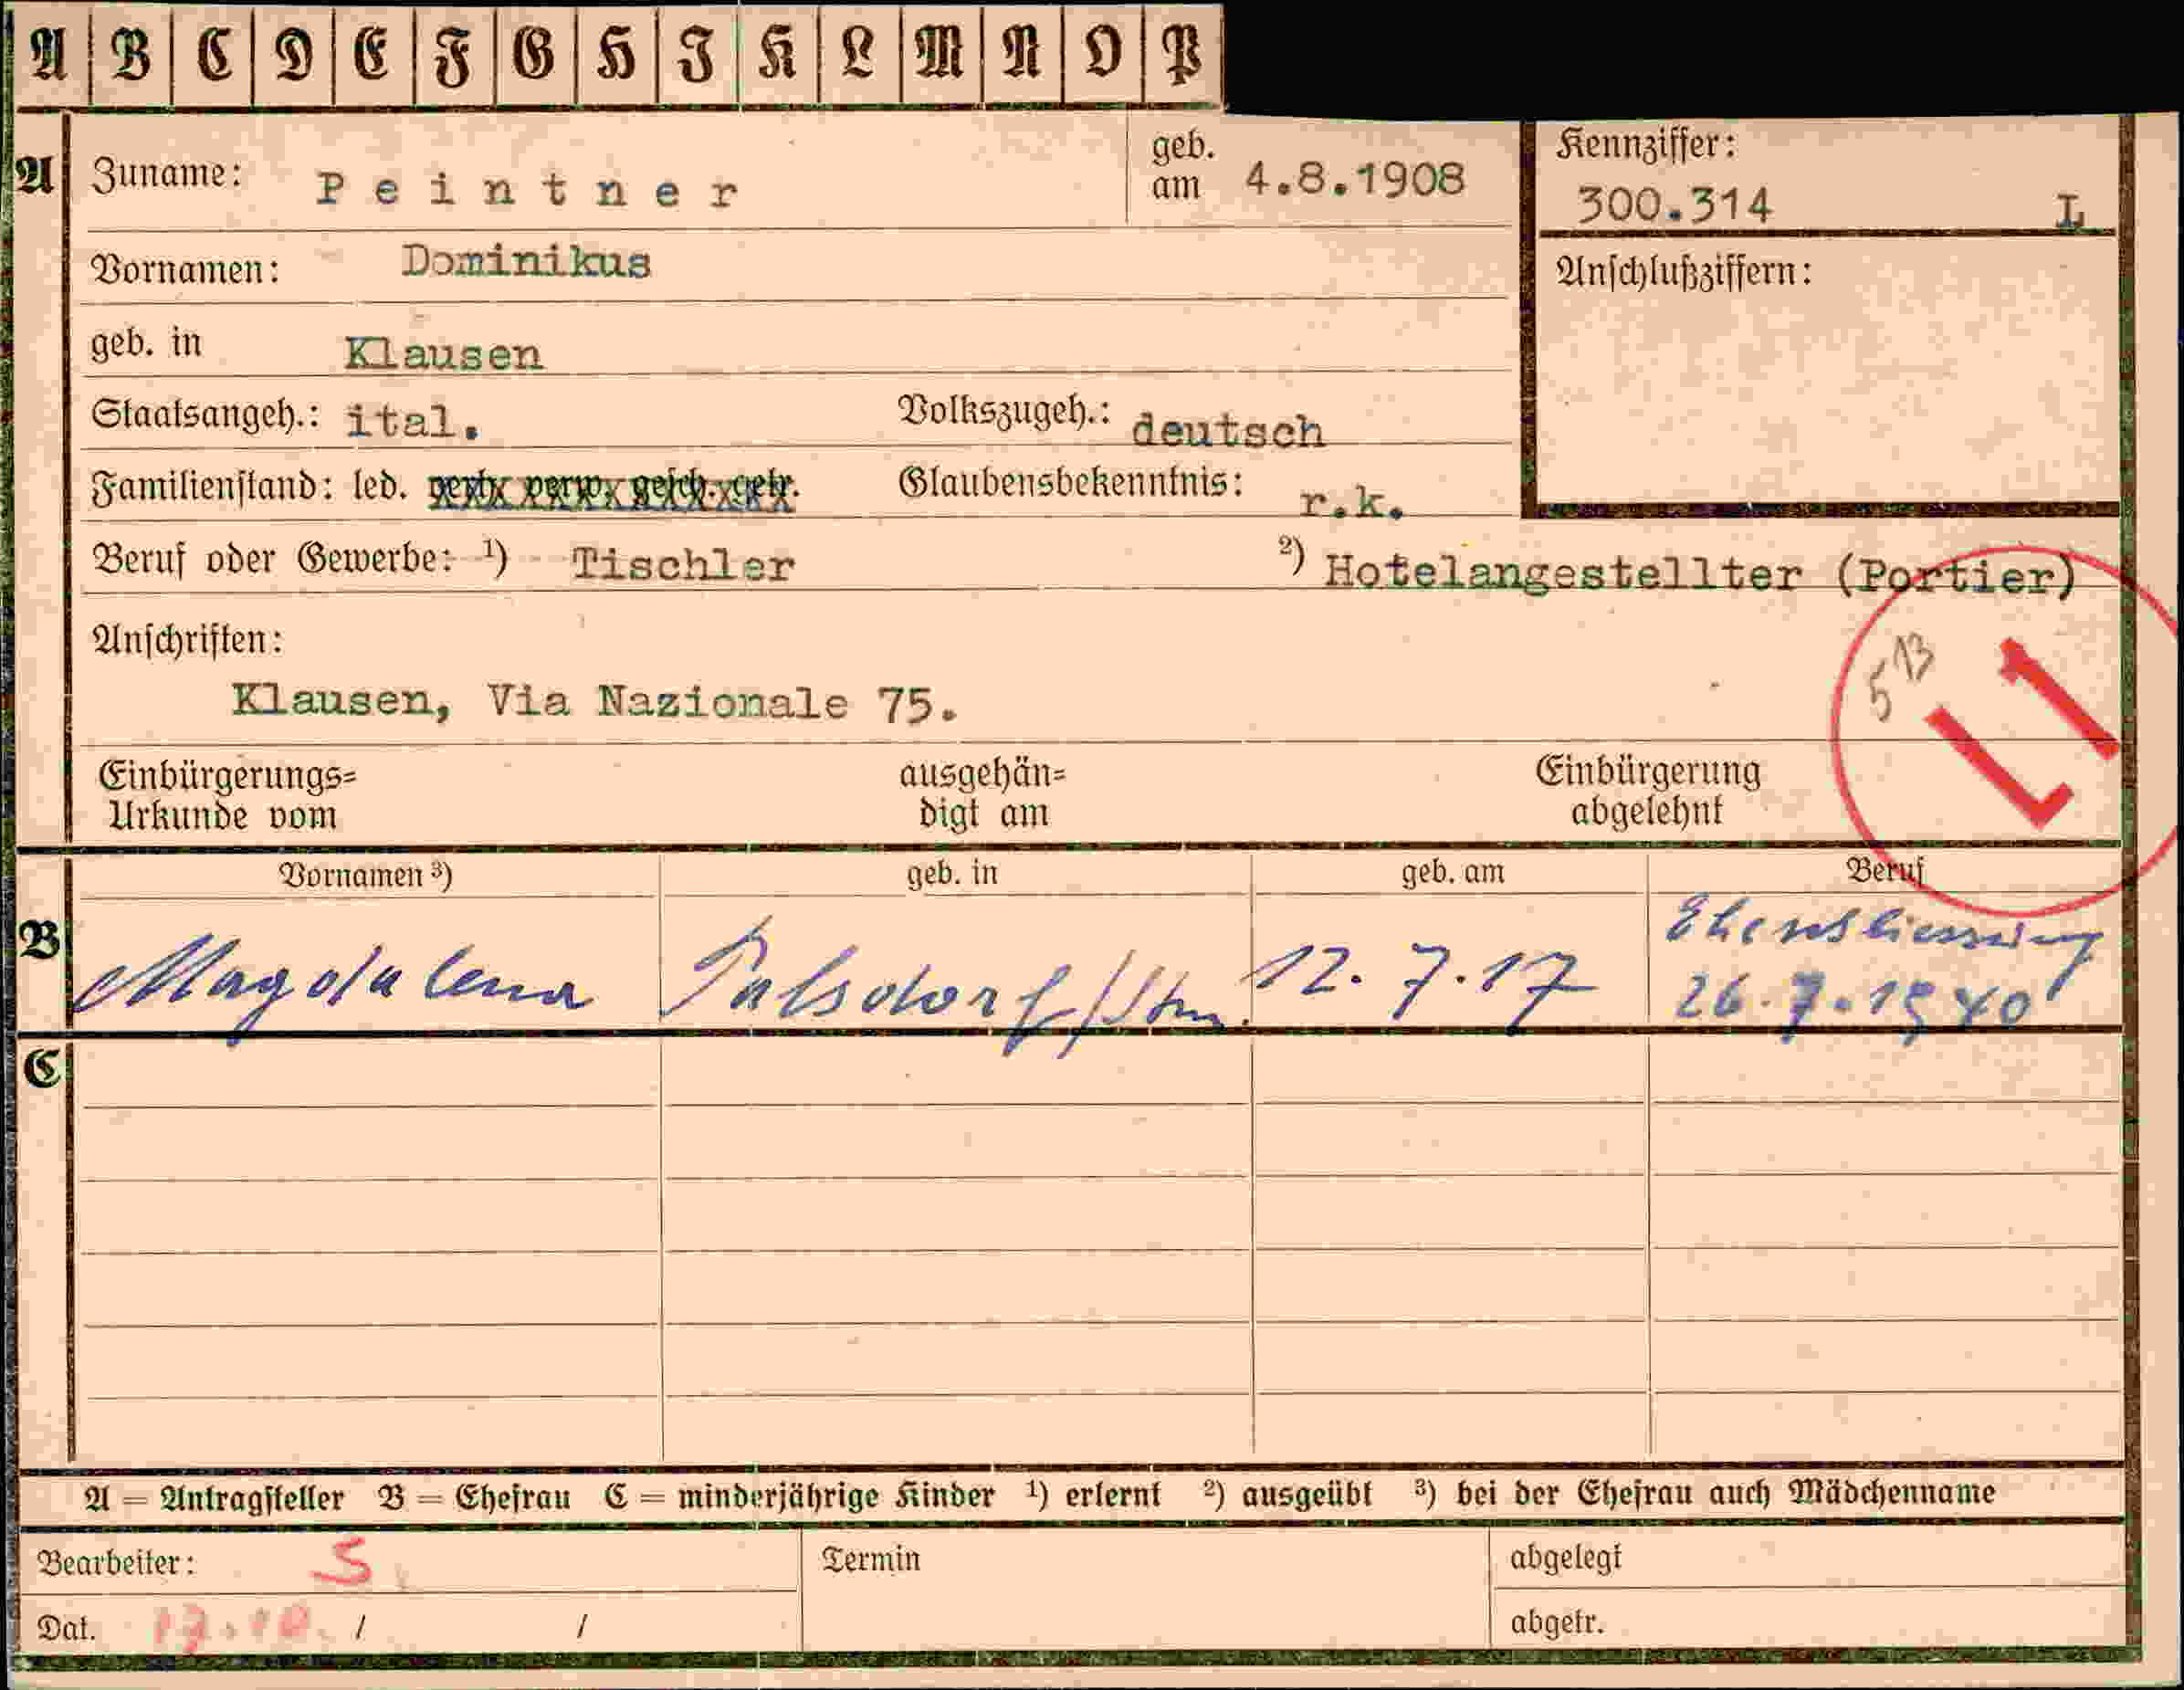 A B C D E F G H J K L M N O P
A Zuname: Peintner geb. am 4.8.1908 Kennziffer: 300.314 L
Vornamen: Dominikus Anschlußziffern:
geb. in Klausen
Staatsangeh.: ital. Volkszugeh.: deutsch
Familienstand: led. verh. verw. gesch. getr. Glaubensbekenntnis: r.k.
Beruf oder Gewerbe: ¹) Tischler ²) Hotelangestellter (Portier)
Anschriften:
5 13
L1
Klausen, Via Nazionale 75.
Einbürgerungs= ausgehän= Einbürgerung
Urkunde vom digt am abgelehnt
Vornamen ³) geb. in geb. am Beruf
B Magdalena 12.7.17 Eheschliessung
26.7.1940
C
A = Antragsteller B = Ehefrau C = minderjährige Kinder ¹) erlernt ²) ausgeübt ³) bei der Ehefrau auch Mädchenname
Bearbeiter: S Termin abgelegt
Dat. 17.10. / / abgetr.